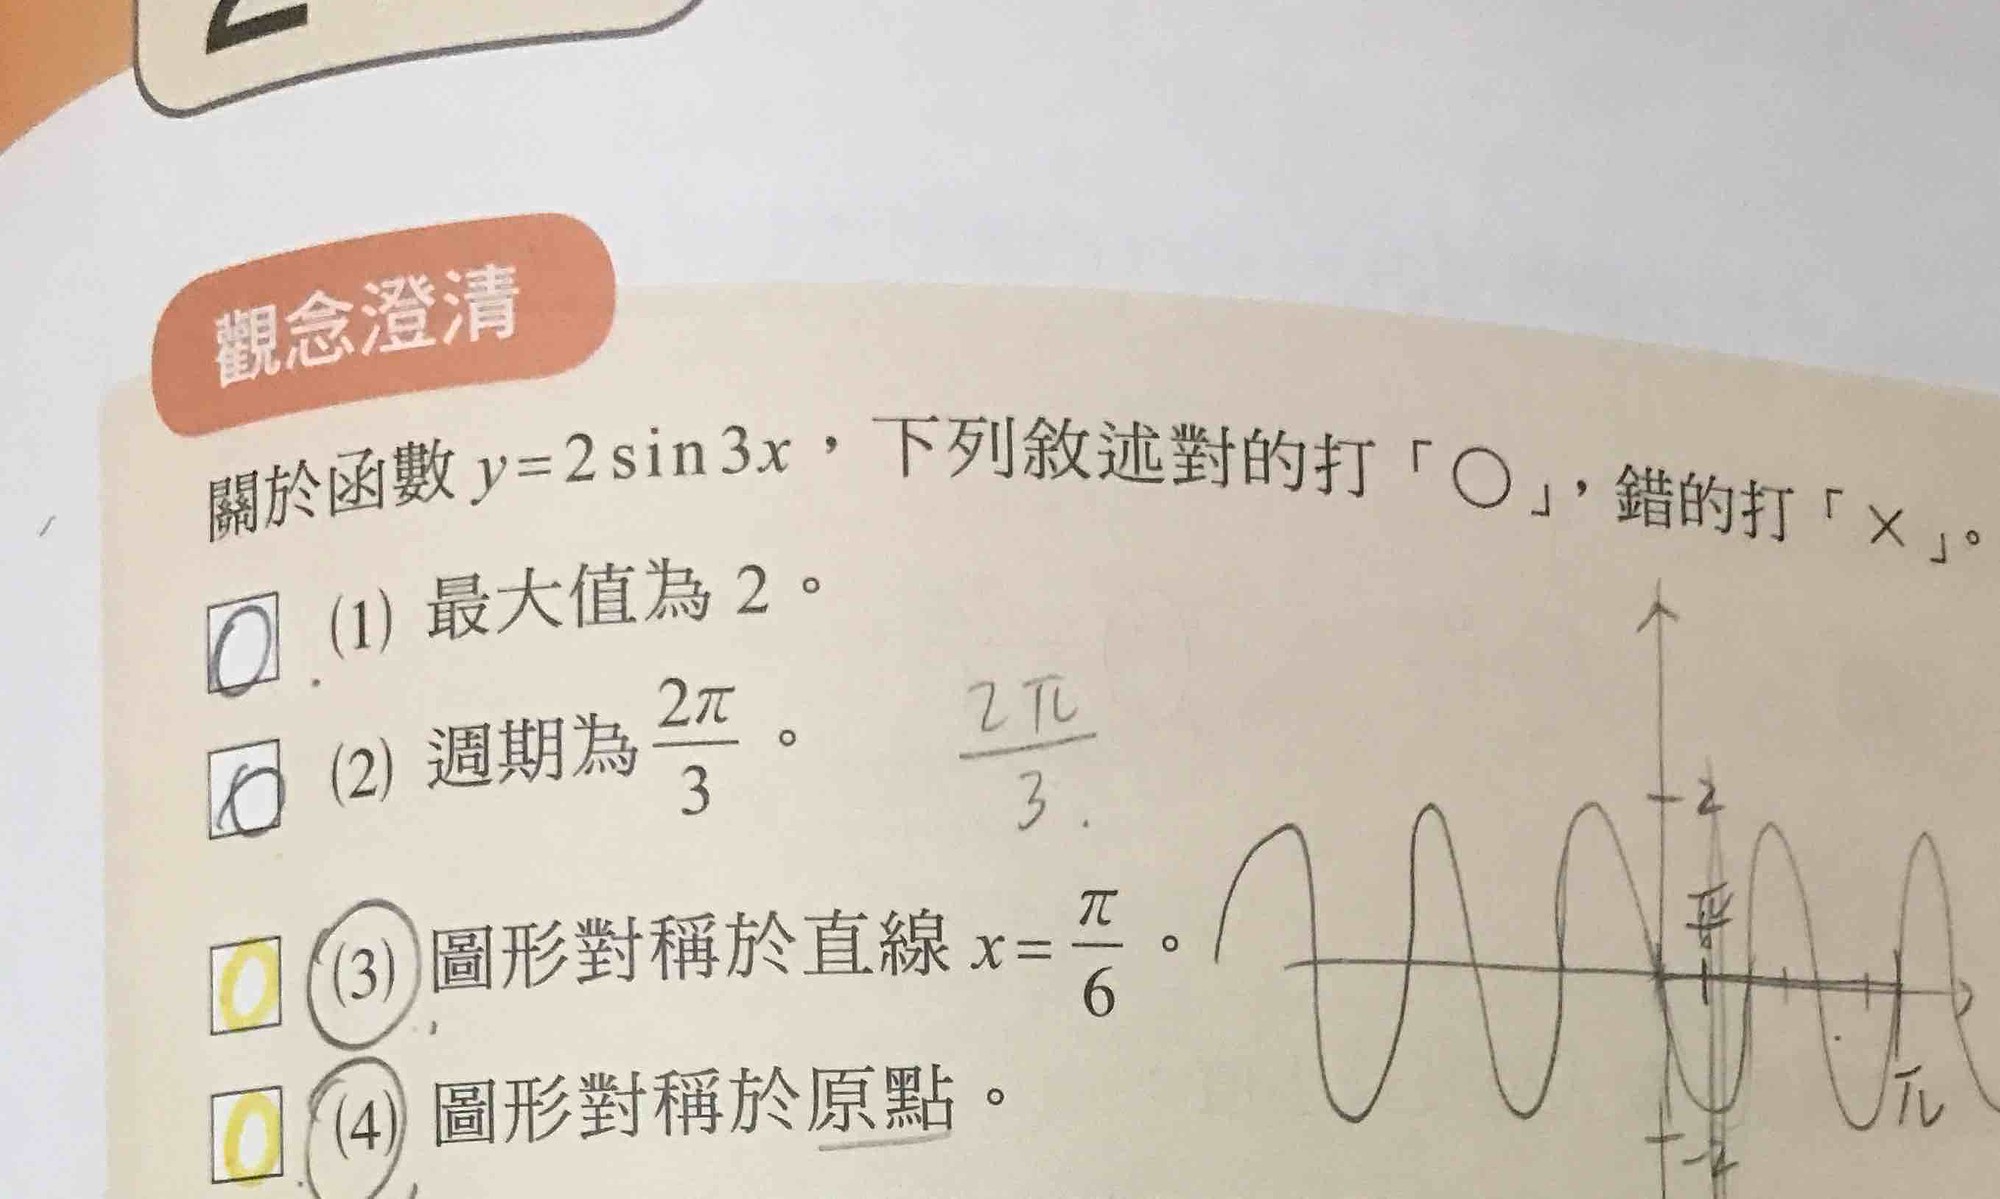 觀念澄清
關於函數 y=2sin3x，下列敘述對的打「○」，錯的打「×」。
(1) 最大值為 2。
(2) 週期為 2π/3。
2π/3.
(3) 圖形對稱於直線 x=π/6。
(4) 圖形對稱於原點。
2
π/6
π
-2